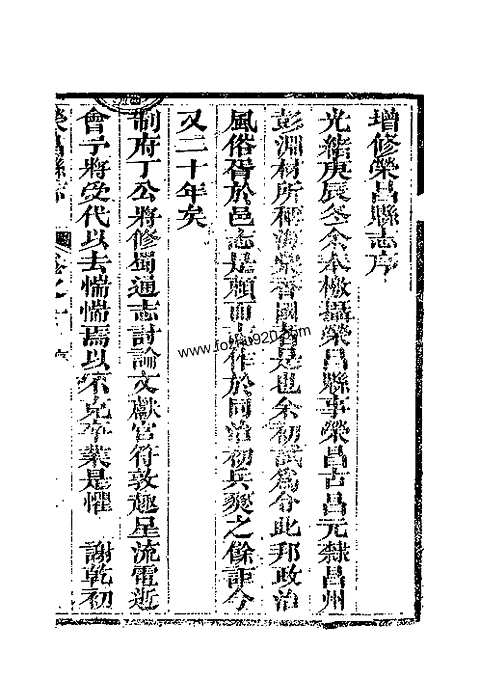 增修榮昌縣志序
光緒庚辰冬余奉檄攝榮昌縣事榮昌古昌元隸昌州
彭淵材所稱海棠香國者是也余初試為令此邦政治
風俗胥於邑志是賴而志作於同治初兵燹之餘距今
又二十年矣
制府丁公將修蜀通志討論文獻官符敦趣星流電逝
會予將受代以去惴惴焉以不克卒業是懼 謝乾初
榮昌縣志 序
www.fozhu920.com